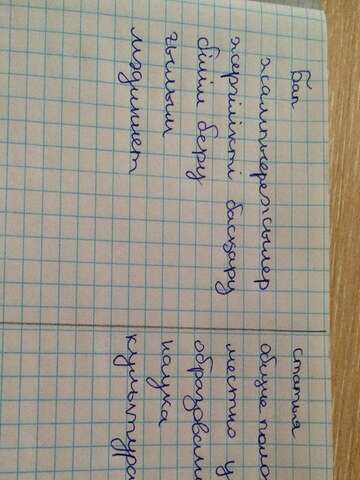 Бап статья
жалпыережелер общие поло
жергілікті басқару местно у
білім беру образован
ғылым наука
мәдениет культура